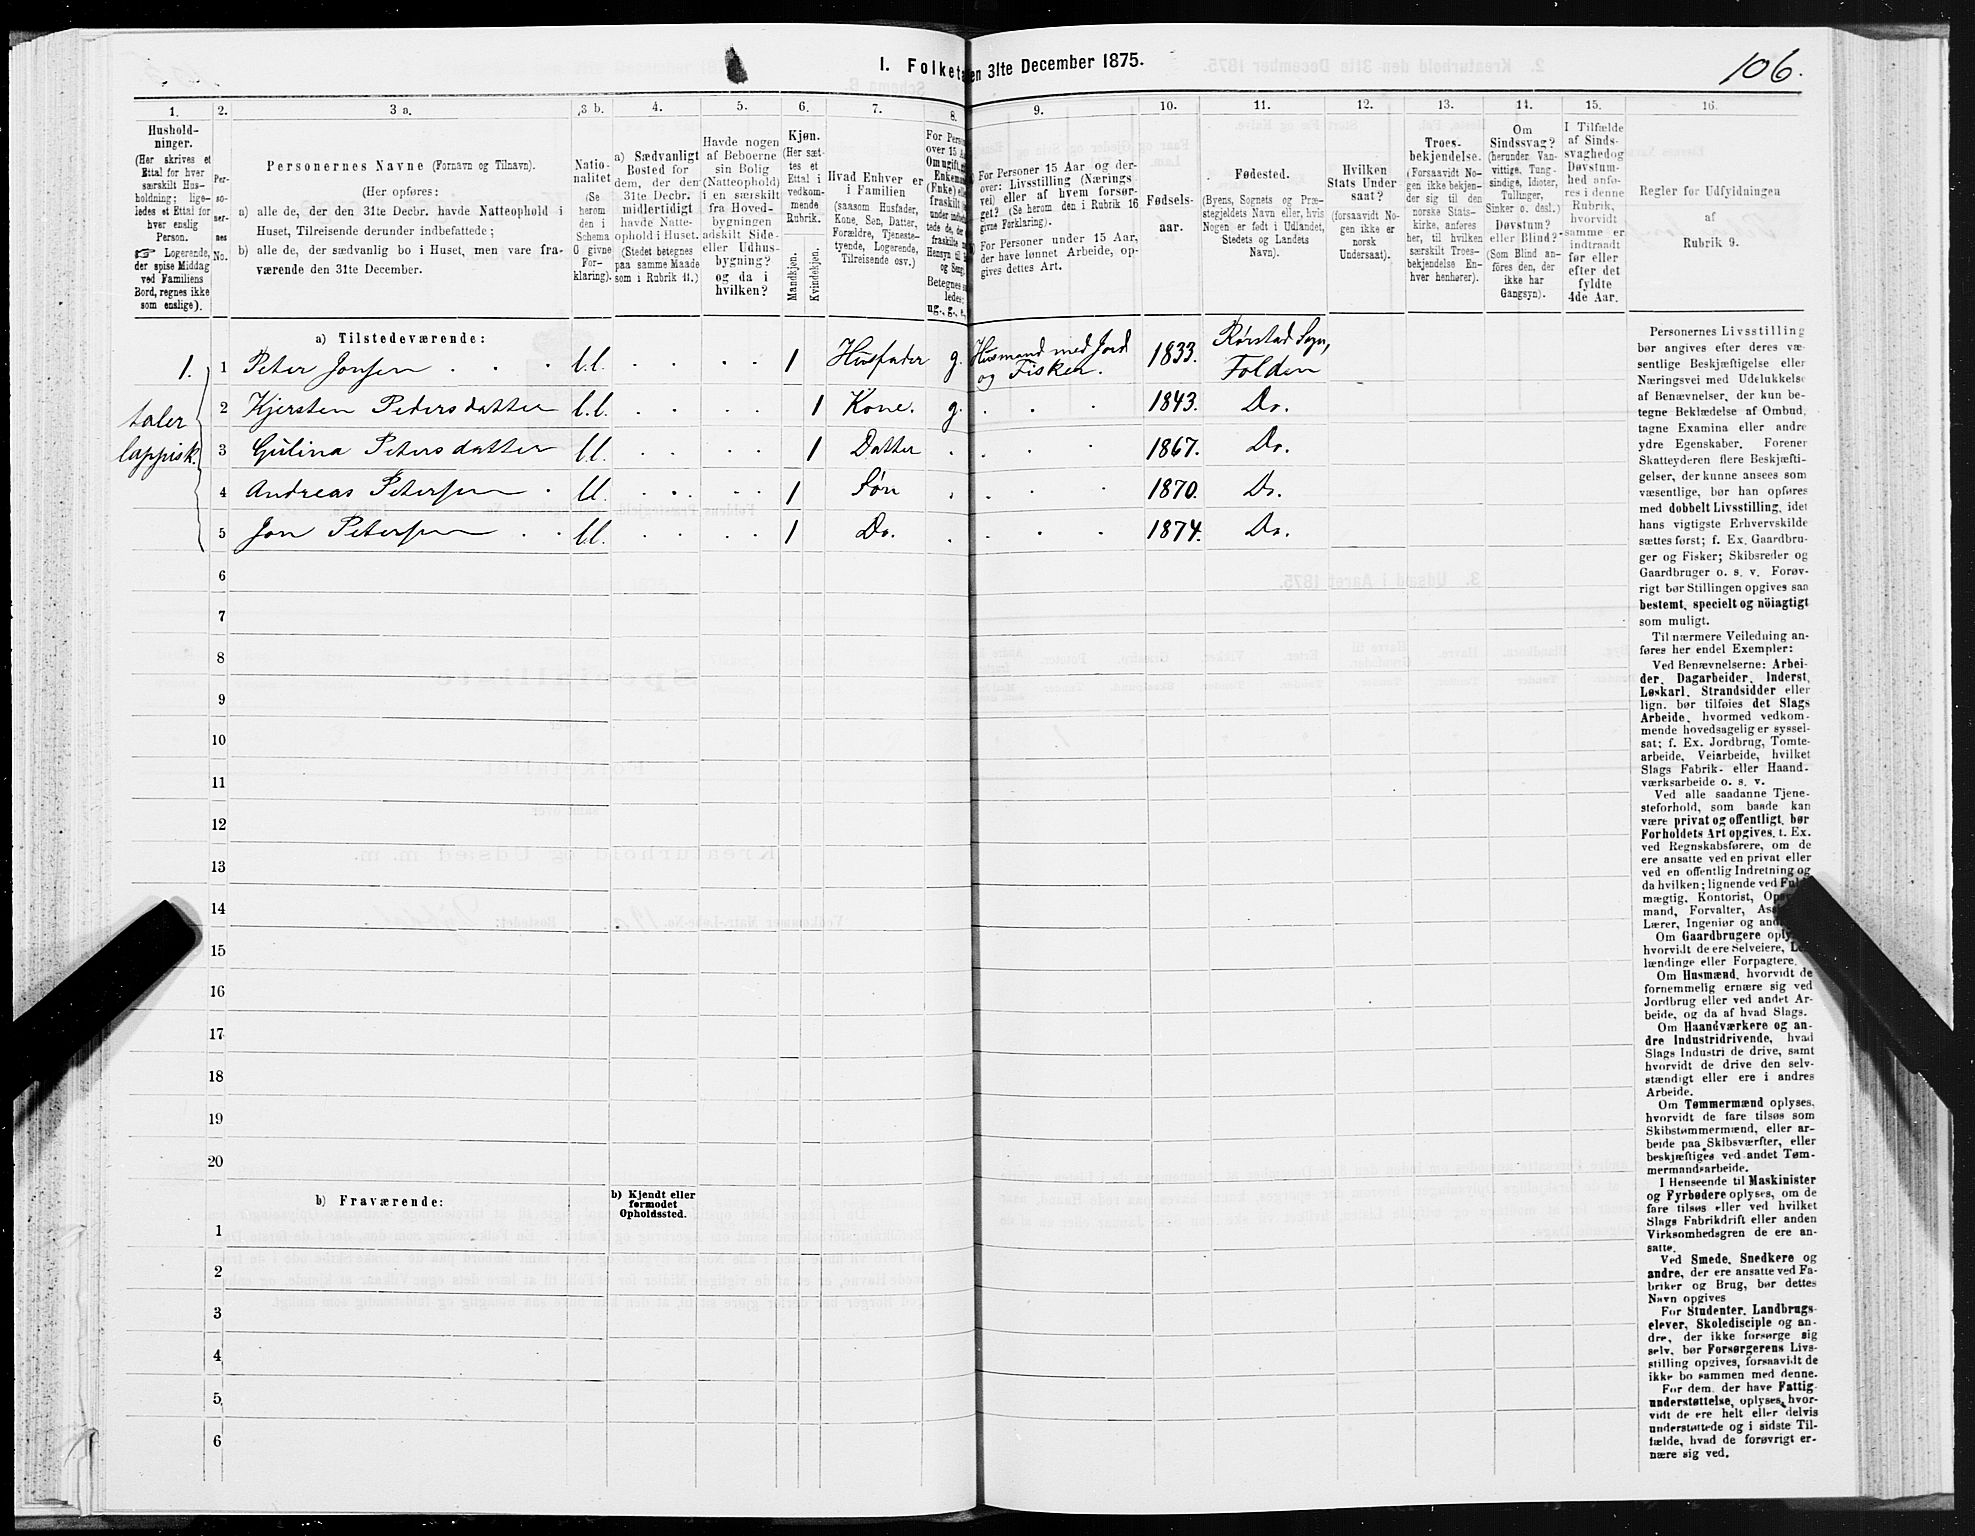 I. Folketa en 31te December 1875.
106.
1.
Hushold-
ninger.
(Her skrives et
Ettal for hver
særskilt Hus-
holdning; lige-
ledes et Ettal for
hver enslig
Person.
Logerende,
der spise Middag
ved Familiens
Bord, regnes ikke
som enslige).
2.
Per-
so-
ner-
nes
No.
3 a.
Personernes Navne (Fornavn og Tilnavn).
(Her opføres:
a) alle de, der den 31te Decbr. havde Natteophold i
Huset, Tilreisende derunder indbefattede;
b) alle de, der sædvanlig bo i Huset, men vare fra-
værende den 31te December.
3 b.
Natio-
nalitet
(Se
herom
den i
Schema
G givne
For-
klaring).
4.
a) Sædvanligt
Bosted for
dem, der den
31te Decbr.
midlertidigt
havde Natte-
ophold i Huset.
(Stedet betegnes
paa samme Maade
som i Rubrik 11.)
5.
Havde nogen
af Beboerne
sin Bolig
(Natteophold)
i en særskilt
fra Hoved-
bygningen
adskilt Side-
eller Udhus-
bygning?
og da i
hvilken?
6.
Kjøn.
(Her sæt-
tes et
Ettal i
vedkom-
mende
Rubrik.
Mandkjøn.
Kvindekjøn.
7.
Hvad Enhver er
i Familien
(saasom Husfader,
Kone, Søn, Datter,
Forældre, Tjeneste-
tyende, Logerende,
Tilreisende osv.)
8.
For Perso
over 15 A
Om ugift,
Enkem
(Enke) el
fraskilt
under
tede de,
fraskilte
Hensyn til
og Seng
Betegnes
ledes:
ug., g., e.,
9.
For Personer 15 Aar og der-
over: Livsstilling (Nærings-
vei) eller af hvem forsør-
get? (Se herom den i Rubrik 16
givne Forklaring).
For Personer under 15 Aar,
der have lønnet Arbeide, op-
gives dettes Art.
10.
Fødsels-
aar.
11.
Fødested.
(Byens, Sognets og Præ-
stegjeldets Navn eller, hvis
Nogen er født i Udlandet,
Stedets og Landets
Navn).
12.
Hvilken
Stats Under
saat?
(forsaavidt No-
gen ikke er
norsk
Undersaat).
13.
Troes-
bekjendelse.
(Forsaavidt No-
gen ikke bekjen-
der sig til den
norske Stats-
kirke, anføres
her, til hvilken
særskilt Troes-
bekjendelse En-
hver henhører).
14.
Om
Sindssvag?
(herunder Van-
vittige, Tung-
sindige, Idioter,
Tullinger,
Sinker o. desl.)
Døvstum?
eller Blind?
(Som Blind an-
føres den, der
ikke har
Gangsyn).
15.
I Tilfælde
af Sinds-
svaghed og
Døvstum-
hed anfø-
res i denne
Rubrik,
hvorvidt
samme er
indtraadt
før eller
efter det
fyldte
4de Aar.
16.
Regler for Udfyldningen
af
Rubrik 9.
a) Tilstedeværende:
1. 1 Peter Jonsen l.l. 1 Husfader g. Husmand med Jord og Fisker. 1833. Rørstad Sogn, Folden
taler
lappisk.
2 Kjersten Pedersdatter l.l. 1 Kone. g. 1843. Do.
3 Gulina Petersdatter l.l. 1 Datter 1867. Do.
4 Andreas Petersen l.l. 1 Søn 1870. Do.
5 Jon Petersen l.l. 1 Do. 1874. Do.
6
7
8
9
10
11
12
13
14
15
16
17
18
19
20
b) Fraværende:
b) Kjendt eller
formodet
Opholdssted.
1
2
3
4
5
6
Personernes Livsstilling
bør angives efter deres væ-
sentlige Beskjæftigelse eller
Næringsvei med Udelukkelse
af Benævnelser, der kun be-
tegne Beklædelse af Ombud,
tagne Examina eller andre
ydre Egenskaber. Forener
Skatteyderen flere Beskjæfti-
gelser, der kunne ansees som
væsentlige, bør han opføres
med dobbelt Livsstilling, idet
hans vigtigste Erhvervskilde
sættes først; f. Ex. Gaardbru-
ger og Fisker; Skibsreder og
Gaardbruger o. s. v. Forøv-
rigt bør Stillingen opgives saa
bestemt, specielt og nöiagtigt
som muligt.
Til nærmere Veiledning an-
føres her endel Exempler:
Ved Benævnelserne: Arbei-
der, Dagarbeider, Inderst,
Løskarl, Strandsidder eller
lign. bør tilføies det Slags
Arbeide, hvormed vedkom-
mende hovedsagelig er syssel-
sat; f. Ex. Jordbrug, Tomte-
arbeide, Veiarbeide, hvilket
Slags Fabrik- eller Haand-
værksarbeide o. s. v.
Ved alle saadanne Tjene-
steforhold, som baade kan
være privat og offentligt, bør
Forholdets Art opgives, t. Ex.
ved Regnskabsførere, om de
ere ansatte ved en privat eller
ved en offentlig Indretning og
da hvilken; lignende ved Fuld
mægtig, Kontorist, Op
mand, Forvalter, As
Lærer, Ingeniør og and
Om Gaardbrugere oply
hvorvidt de ere Selveiere, Le
lændinge eller Forpagtere.
Om Husmænd, hvorvidt de
fornemmelig ernære sig ved
Jordbrug eller ved andet Ar-
beide, og da af hvad Slags.
Om Haandværkere og an-
dre Industridrivende, hvad
Slags Industri de drive, samt
hvorvidt de drive den selv-
stændigt eller ere i andres
Arbeide.
Om Tømmermænd oplyses,
hvorvidt de fare tilsøs som
Skibstømmermænd, eller ar-
beide paa Skibsværfter, eller
beskjæftiges ved andet Tøm-
mermandsarbeide.
I Henseende til Maskinister
og Fyrbødere oplyses, om de
fare tilsøs eller ved hvilket
Slags Fabrikdrift eller anden
Virksomhedsgren de ere an-
satte.
Ved Smede, Snedkere og
andre, der ere ansatte ved Fa-
briker og Brug, bør dettes
Navn opgives
For Studenter, Landbrugs-
elever, Skoledisciple og an-
dre, der ikke forsørge sig
selv, bør Forsørgerens Livs-
stilling opgives, forsaavidt de
ikke bo sammen med denne.
For dem, der have Fattig-
understøttelse, oplyses, hvor-
vidt de ere helt eller delvis
understøttede og i sidste Til-
fælde, hvad de forøvrigt er-
nære sig ved.